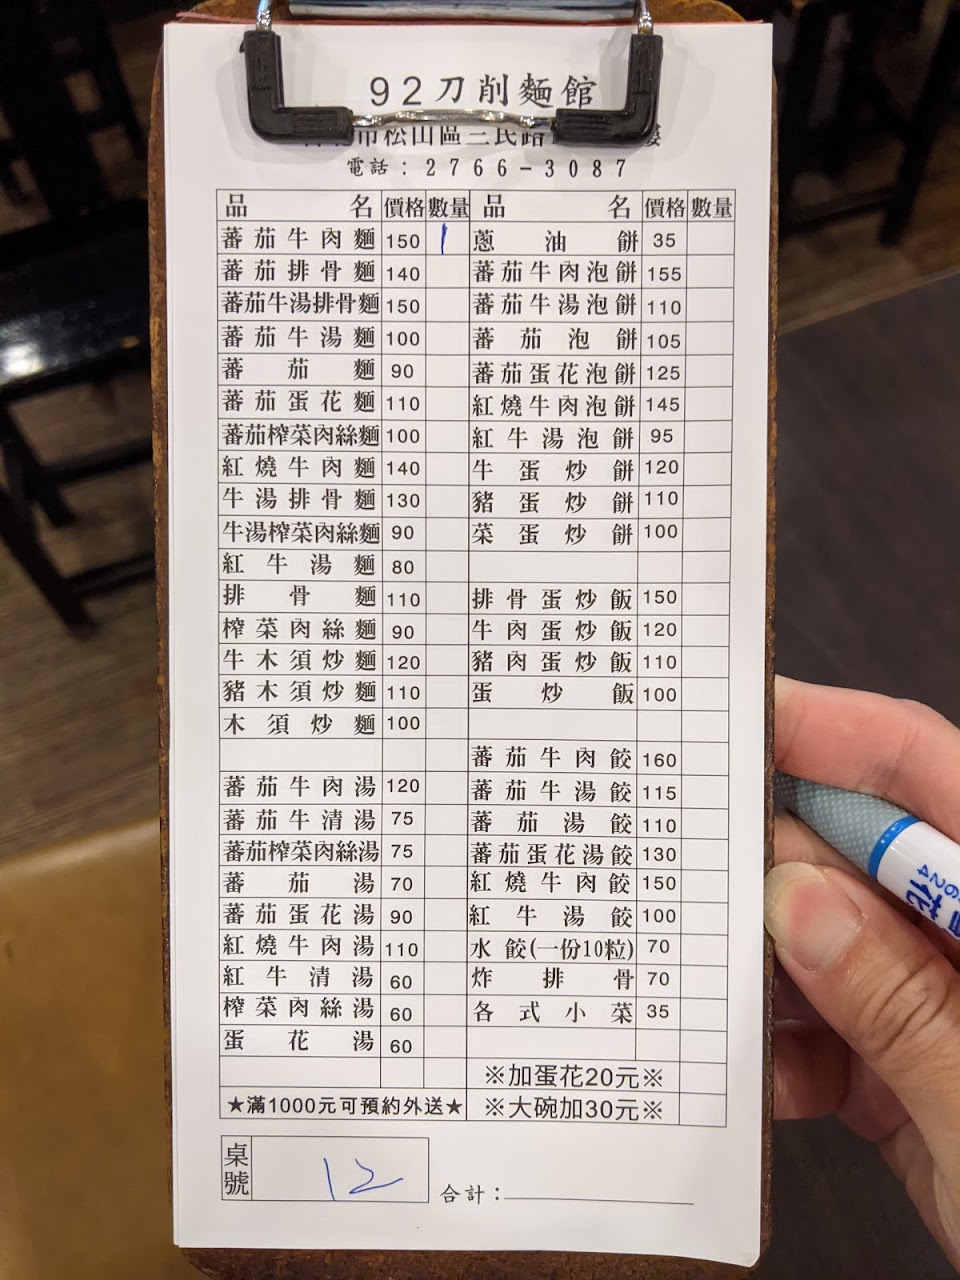 92刀削麵館
市松山區三民路
電話：2766-3087
品名 價格 數量 品名 價格 數量
蕃茄牛肉麵 150 1 蔥油餅 35
蕃茄排骨麵 140 蕃茄牛肉泡餅 155
蕃茄牛湯排骨麵 150 蕃茄牛湯泡餅 110
蕃茄牛湯麵 100 蕃茄泡餅 105
蕃茄麵 90 蕃茄蛋花泡餅 125
蕃茄蛋花麵 110 紅燒牛肉泡餅 145
蕃茄榨菜肉絲麵 100 紅牛湯泡餅 95
紅燒牛肉麵 140 牛蛋炒餅 120
牛湯排骨麵 130 豬蛋炒餅 110
牛湯榨菜肉絲麵 90 菜蛋炒餅 100
紅牛湯麵 80
排骨麵 110 排骨蛋炒飯 150
榨菜肉絲麵 90 牛肉蛋炒飯 120
牛木須炒麵 120 豬肉蛋炒飯 110
豬木須炒麵 110 蛋炒飯 100
木須炒麵 100
蕃茄牛肉餃 160
蕃茄牛肉湯 120 蕃茄牛湯餃 115
蕃茄牛清湯 75 蕃茄湯餃 110
蕃茄榨菜肉絲湯 75 蕃茄蛋花湯餃 130
蕃茄湯 70 紅燒牛肉餃 150
蕃茄蛋花湯 90 紅牛湯餃 100
紅燒牛肉湯 110 水餃(一份10粒) 70
紅牛清湯 60 炸排骨 70
榨菜肉絲湯 60 各式小菜 35
蛋花湯 60
※加蛋花20元※
★滿1000元可預約外送★ ※大碗加30元※
桌號 12 合計：
花
624